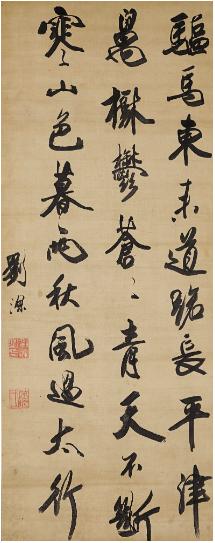 驅馬東来道路長平津
樹鬱蒼々青天不斷
寒山色暮雨秋風過太行
劉